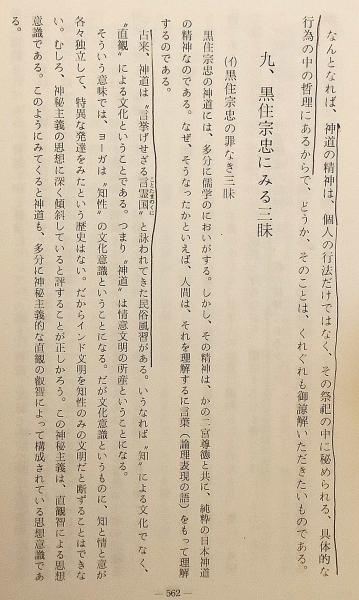 なんとなれば、神道の精神は、個人の行法だけではなく、その祭祀の中に秘められる、具体的な
行為の中の哲理にあるからで、どうか、そのことは、くれぐれも御諒解いただきたいものである。
九、黒住宗忠にみる三昧
(イ)黒住宗忠の罪なき三昧
黒住宗忠の神道には、多分に儒学のにおいがする。しかし、その精神は、かの二宮尊徳と共に、純粋の日本神道
の精神なのである。なぜ、そうなったかといえば、人間は、それを理解するに言葉(論理表現の語)をもって理解
するのである。
古来、神道は〝言挙げせざる言霊国〟と詠われてきた民俗風習がある。いうなれば〝知〟による文化でなく、
〝直観〟による文化ということである。つまり〝神道〟は情意文明の所産ということになる。
そういう意味では、ヨーガは〝知性〟の文化意識ということになる。だが文化意識というものに、知と情と意が
各々独立して、特異な発達をみたという歴史はない。だからインド文明を知性のみの文明だと断ずることはできな
い。むしろ、神秘主義の思想に深く傾斜していると評することが正しかろう。この神秘主義は、直観智による思想
意識である。このようにみてくると神道も、多分に神秘主義的な直観の叡智によって構成されている思想意識であ
る。
— 562 —